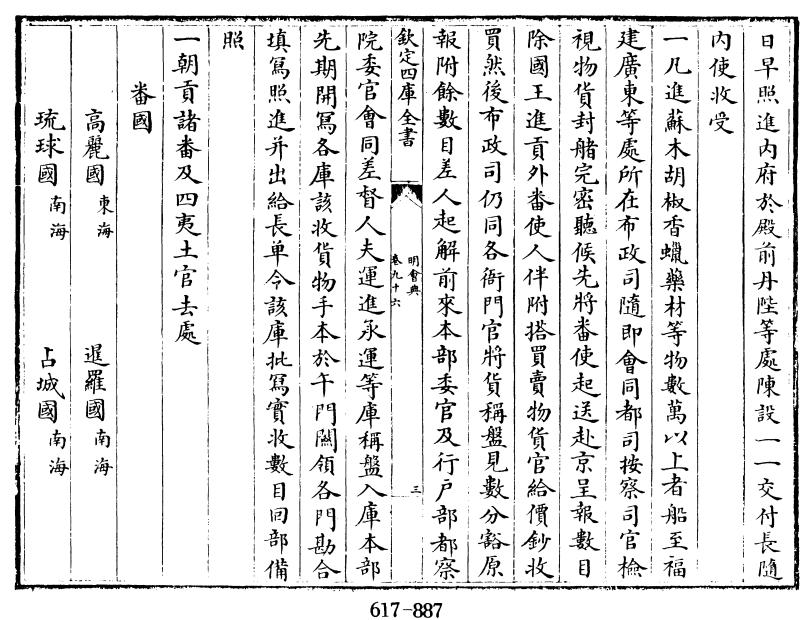 日早照進內府於殿前丹陛等處陳設一一交付長隨
內使收受
一凡進蘇木胡椒香蠟藥材等物數萬以上者船至福
建廣東等處所在布政司隨即會同都司按察司官檢
視物貨封䑸完密聽候先將番使起送赴京呈報數目
除國王進貢外番使人伴附搭買賣物貨官給價鈔收
買然後布政司仍同各衙門官將貨稱盤見數分豁原
報附餘數目差人起解前來本部委官及行戶部都察
欽定四庫全書
明會典
卷九十六
三
院委官會同差督人夫運進永運等庫稱盤入庫本部
先期開寫各庫該收貨物手本於午門關領各門勘合
填寫照進并出給長单令該庫批寫實收數目回部備
照
一朝貢諸番及四夷土官去處
番國
高麗國 東海 暹羅國 南海
琉球國 南海 占城國 南海
617-887